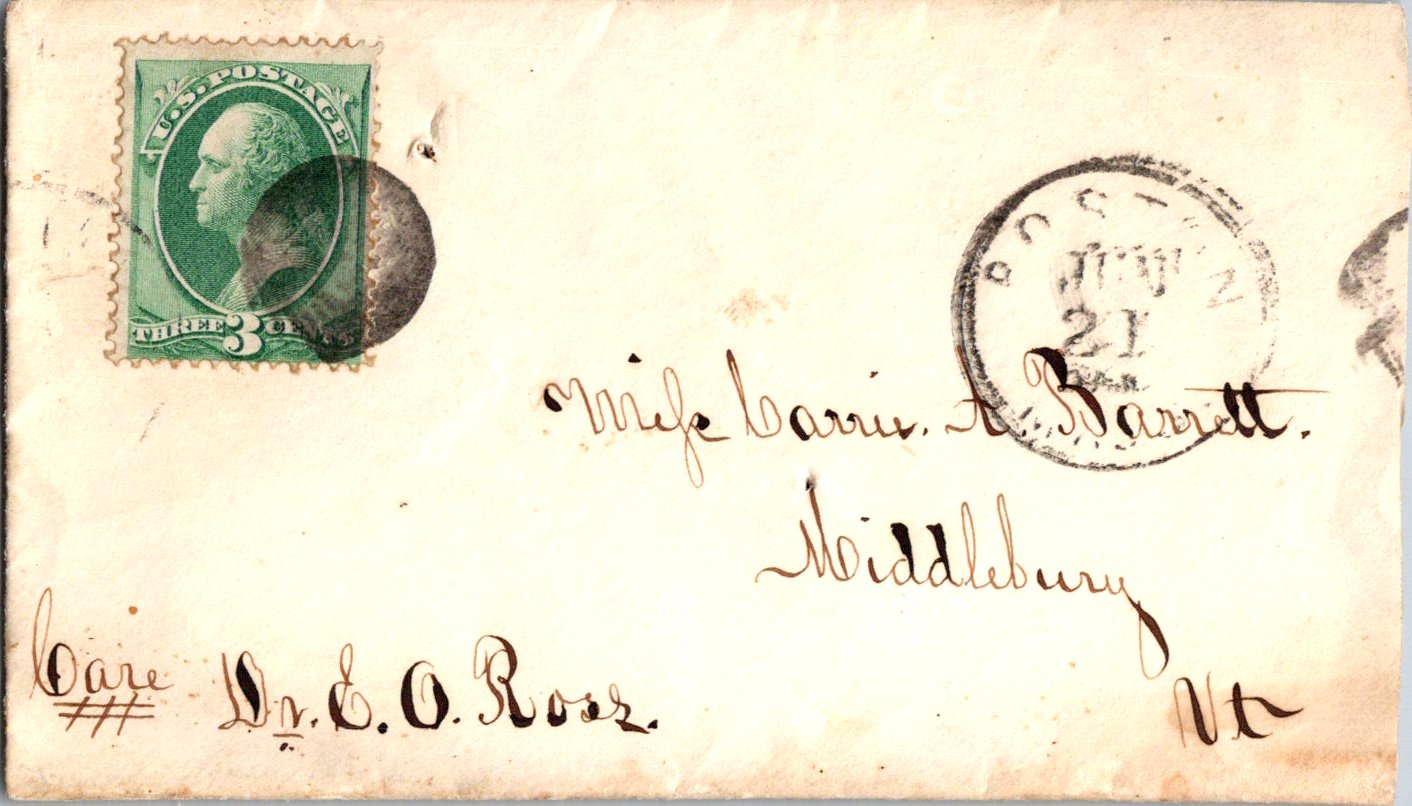 U.S. POSTAGE
THREE 3 CENTS
BOSTON
JUN
21
MASS.
Miss Carrie. A Barrett.
Middlebury
Vt
Care Dr. E. O. Ross.